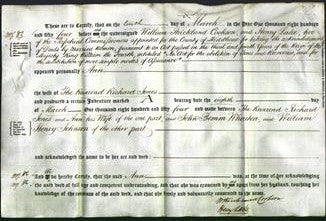 These are to Certify, that on the tenth day of March in the Year One thousand eight hundred
and fifty four before us the undersigned William Strickland Cookson, and Henry Lake,
two of the Perpetual Commissioners appointed for the County of Middlesex for taking the acknowledgments
of Deeds by Married Women, pursuant to an Act passed in the third and fourth Years of the Reign of His
Majesty King William the Fourth, intituled "An Act for the abolition of Fines and Recoveries, and for
the substitution of more simple modes of Assurance"
appeared personally Ann
the Wife of The Reverend Richard Jones
and produced a certain Indenture marked A bearing date the eighth day
of March One thousand eight hundred and fifty four and made between The Reverend Richard
Jones and Ann his Wife of the one part, and John and William
Henry Johnson of the other part
and acknowledged the same to be her act and deed:
And we do hereby certify, that the said Ann was, at the time of her acknowledging
the said deed of full age and competent understanding, and that she was examined by us, apart from her husband, touching
her knowledge of the contents of the said deed, and that she freely and voluntarily consented to the same.
Cookson
Henry Lake